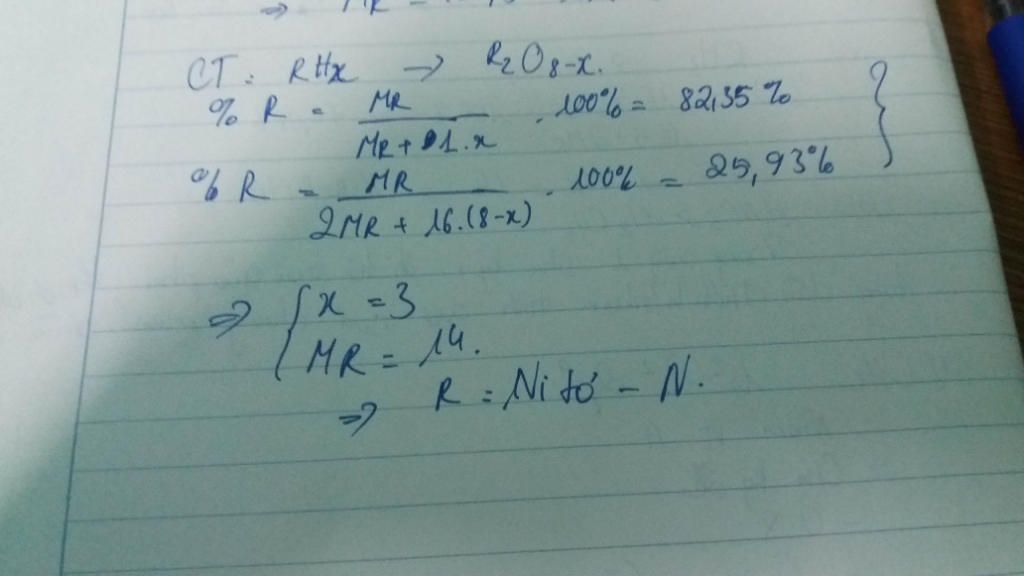 ⇒ MR =
CT: RHx → R₂O₈₋ₓ.
% R = MR / (MR + 1.x) . 100% = 82,35%
% R = MR / (2MR + 16.(8-x)) . 100% = 25,93%
}
⇒ { x = 3
MR = 14.
⇒ R = Nitơ - N.